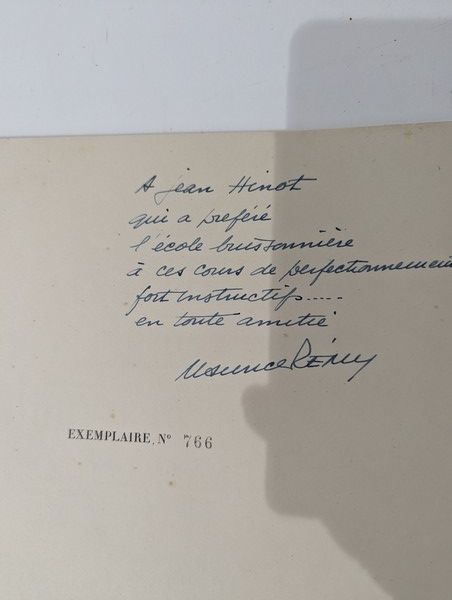 A Jean Hinot
qui a preféré
l'école buissonnière
à ces cours de perfectionnement
fort instructifs.....
en toute amitié
Maurice Rémy
EXEMPLAIRE, N° 766